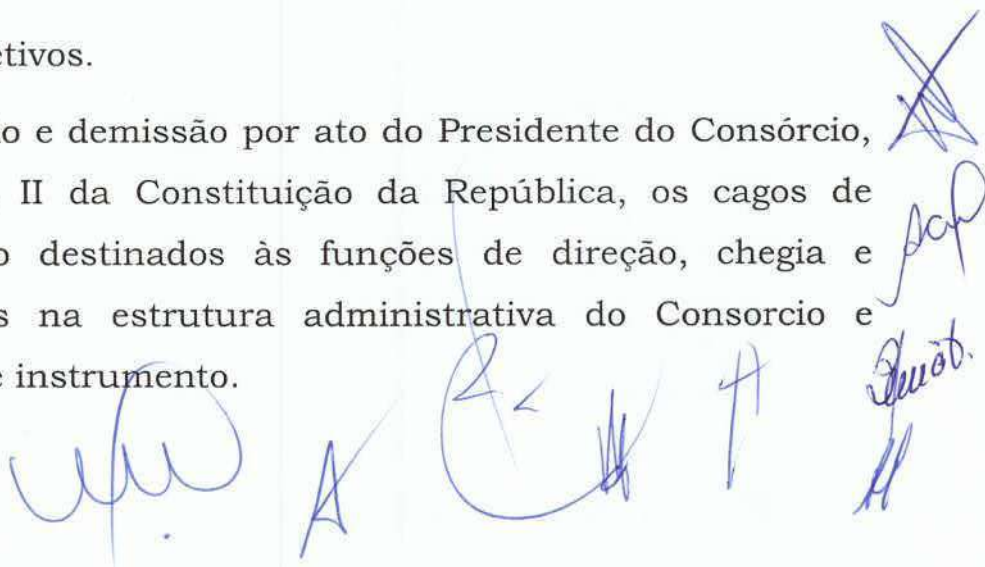 etivos.
o e demissão por ato do Presidente do Consórcio,
II da Constituição da República, os cagos de
o destinados às funções de direção, chegia e
s na estrutura administrativa do Consorcio e
e instrumento.